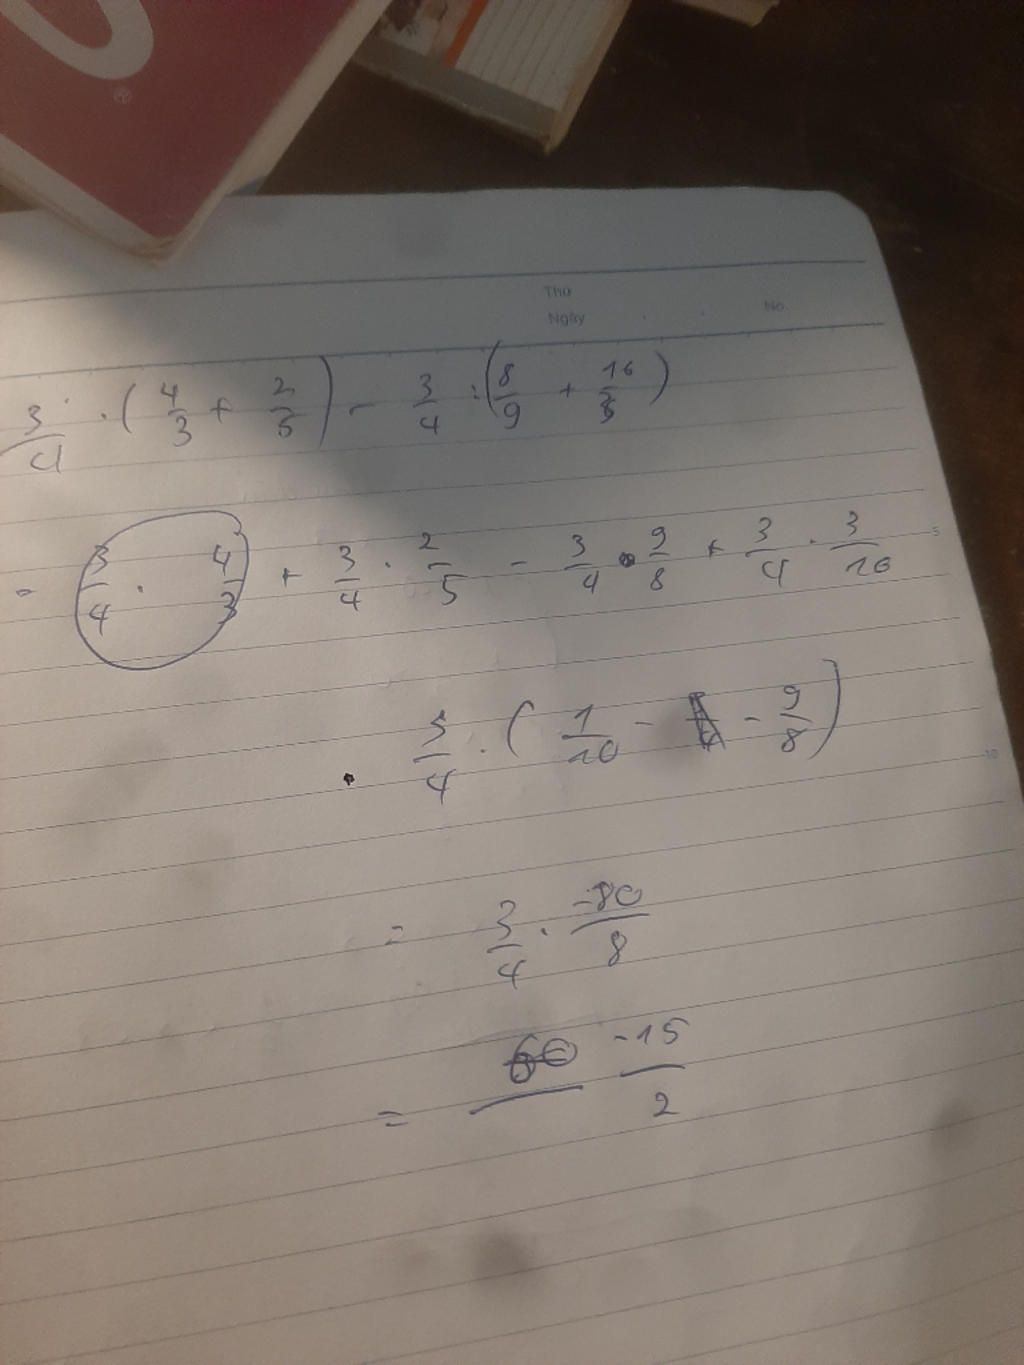 ®
Thứ
Ngày No.
3/4 . (4/3 + 2/5) - 3/4 : (8/9 + 16/3)
= 3/4 . 4/3 + 3/4 . 2/5 - 3/4 . 9/8 + 3/4 . 3/16
5
3/4 . (1/10 - - 9/8)
10
= 3/4 . -80/8
= -15/2